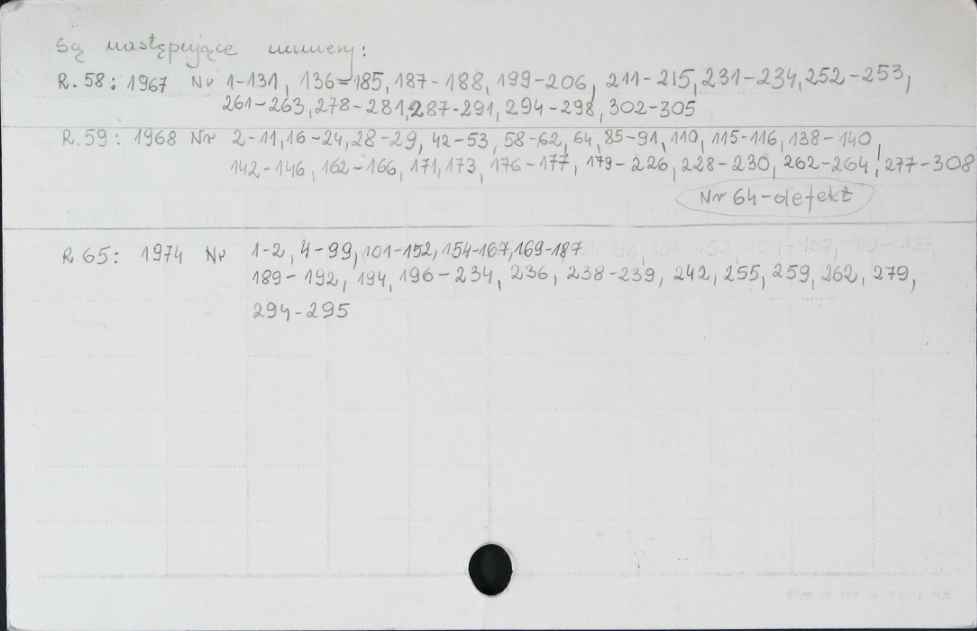 są następujące numery:
R. 58: 1967 Nr 1-131, 136-185, 187-188, 199-206, 211-215, 231-234, 252-253,
261-263, 278-281, 287-291, 294-298, 302-305
R. 59: 1968 Nr 2-11, 16-24, 28-29, 42-53, 58-62, 64, 85-91, 110, 115-116, 138-140,
142-146, 162-166, 171, 173, 176-177, 179-226, 228-230, 262-264, 277-308
Nr 64-defekt
R 65: 1974 Nr 1-2, 4-99, 101-152, 154-167, 169-187
189-192, 194, 196-234, 236, 238-239, 242, 255, 259, 262, 279,
294-295